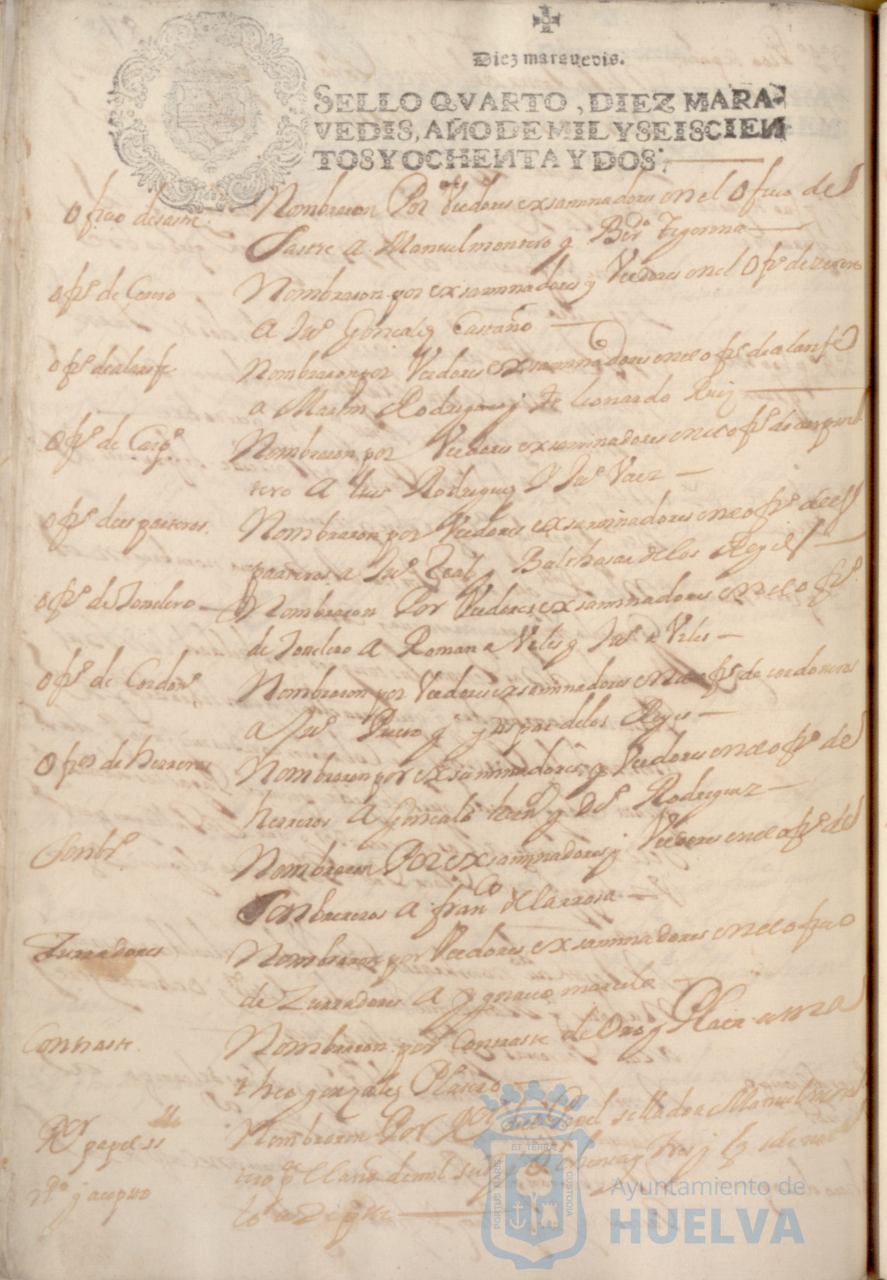 Diez maravedis.
SELLO QVARTO, DIEZ MARA-
VEDIS, AÑO DE MIL Y SEISCIEN
TOS Y OCHENTA Y DOS.
Ofiçio de sastre. Nombraron Por Veedores exsaminadores en el Ofiçio de
Sastre a Manuel montero y Berdo Tigorma
Ofiº de Cerero Nombraron por exsaminadores y Veedores en el Ofiº de
A Juº Gonçales Castaño
Ofiº de alarife Nombraron por Veedores exsaminadores en el ofiº de alarife
a Martin Rodriguez y de leonardo Ruiz
Ofiº de Carpº Nombraron por Veedores exsaminadores en el ofiº de carpin
tero A Luis Rodriguez Y Juº Vaez
Ofiº de esparteros Nombraron por Veedores exsaminadores en el ofiº de es
parteros a Juº Leal y Balthasar de los Reyes
Ofiº de Tonelero Nombraron Por Veedores exsaminadores en el ofiº
de Tonelero A Roman a Viles y Juº a Viles
Ofiº de Cordonº Nombraron por Veedores exsaminadores en el ofiº de cordoneros
a Juº y gaspar de los Reyes
Ofiº de herreros Nombraron por exsaminadores y Veedores en el ofiº de
herreros A Gonçalo y Dº Rodriguez
Sombrº Nombraron Por exsaminadores y Veedores en el ofiº de
Sombreros A franco de larrosa
Zurradores Nombraron por Veedores exsaminadores en el ofiçio
de Zurradores A ygnacio
Contraste. Nombraron por Contraste de Oro y Plata
theo gonzales Platero
Ror papel sello Nombraron Por Ror del papel sellado a Manuel
tero pª el año de mil seisº y ochenta y tres
Ayuntamiento de
HUELVA
PORTUS MARIS
ET TERRÆ
CUSTODIA